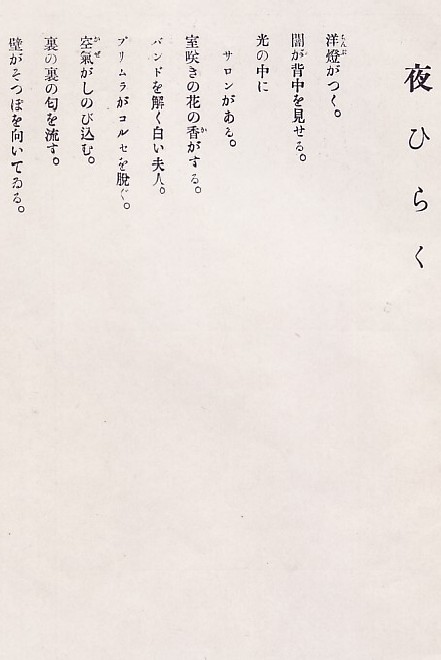 夜ひらく
洋燈がつく。
闇が背中を見せる。
光の中に
サロンがある。
室咲きの花の香がする。
バンドを解く白い夫人。
プリムラがコルセを脱ぐ。
空氣がしのび込む。
裏の裏の匂を流す。
壁がそつぽを向いてゐる。